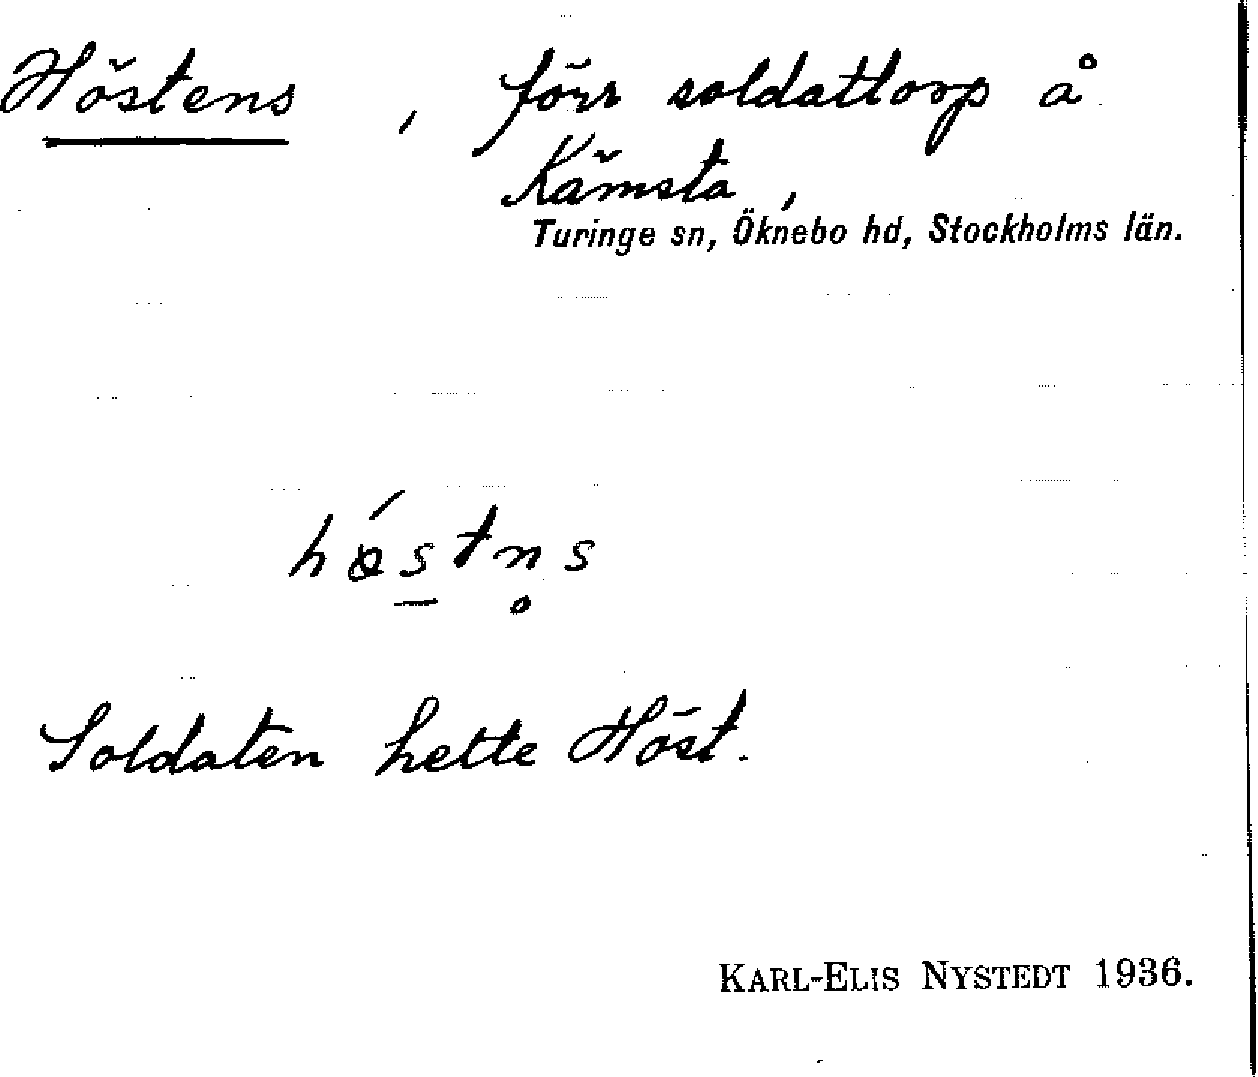 Höstens, förr soldattorp å
Kämsta,
Turinge sn, Öknebo hd, Stockholms län.
hǿs̱tn̥s
Soldaten hette Höst.
KARL-ELIS NYSTEDT 1936.